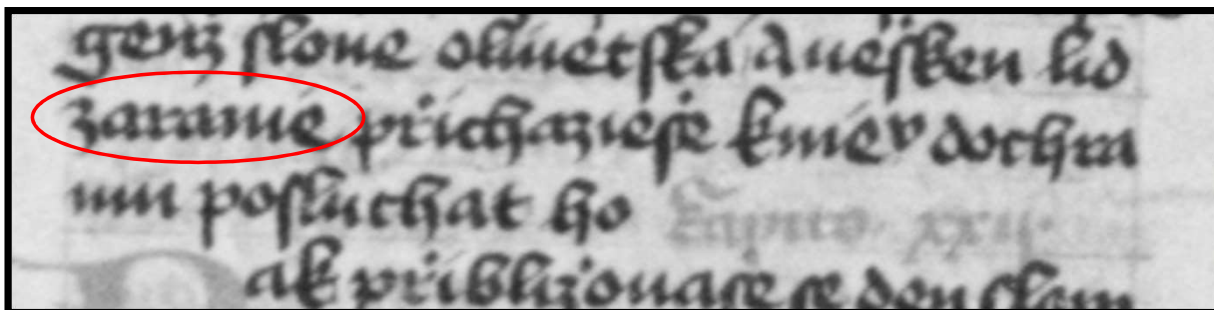 genż slove olivetska A vesken lid
zaranie přichazieše k niev do chra
mu posluchat ho Capito. xxii.
ak přibližovaše se den slam